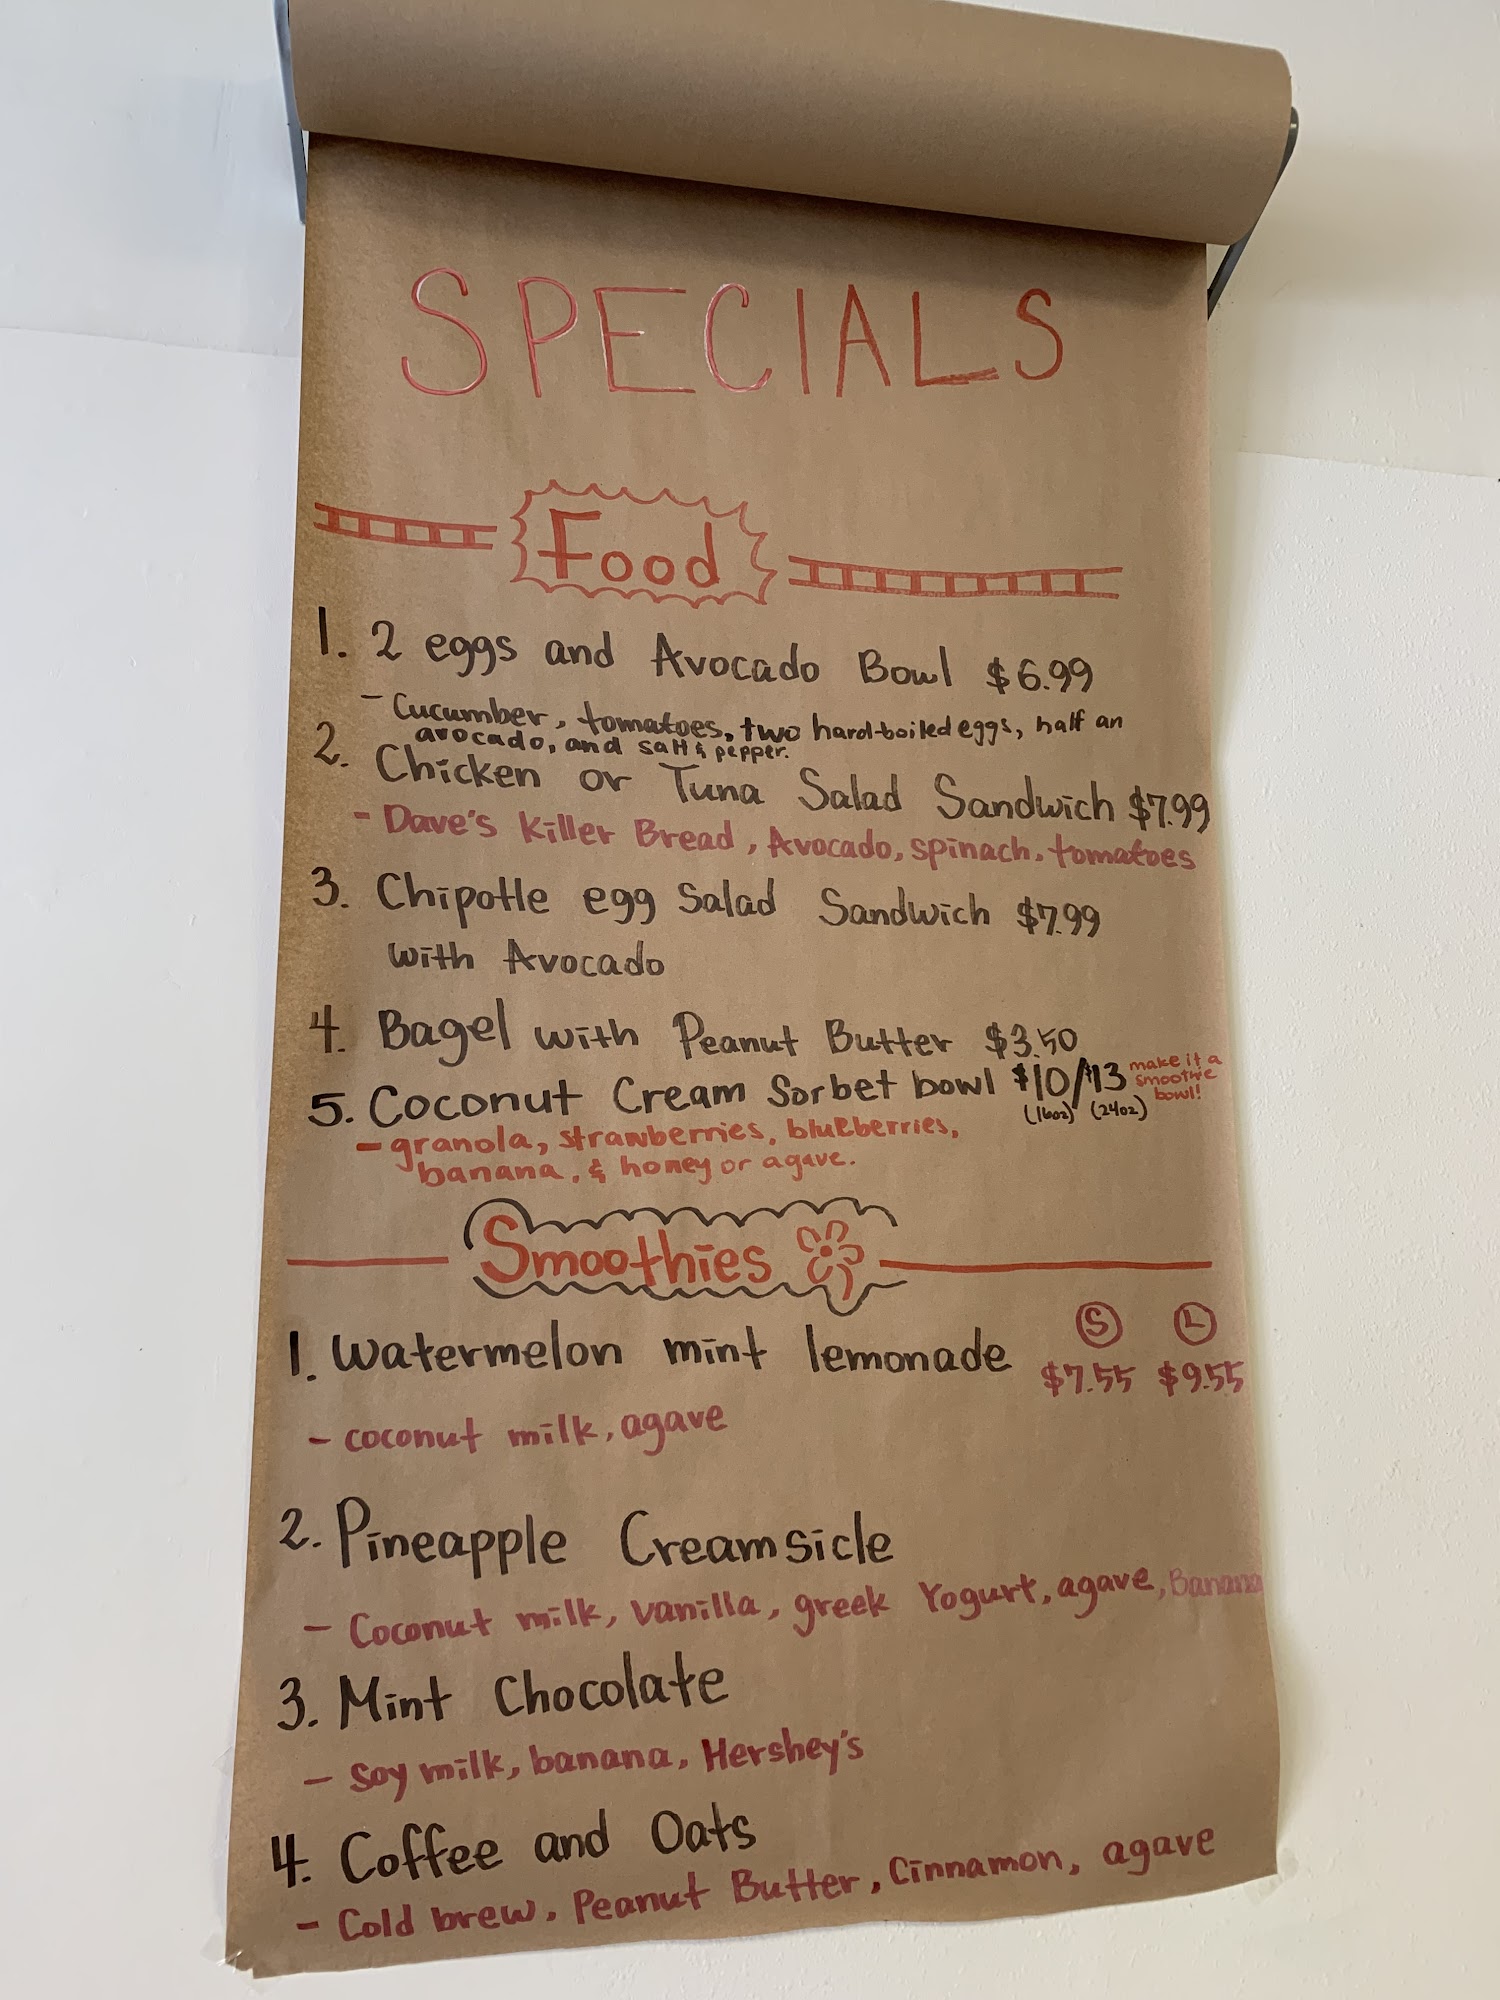 SPECIALS
Food
1. 2 eggs and Avocado Bowl $6.99
- Cucumber, tomatoes, two hard-boiled eggs, half an
avocado, and salt & pepper.
2. Chicken or Tuna Salad Sandwich $7.99
- Dave's Killer Bread, Avocado, spinach, tomatoes
3. Chipotle egg Salad Sandwich $7.99
with Avocado
4. Bagel with Peanut Butter $3.50
5. Coconut Cream Sorbet bowl $10/$13
(16oz) (24oz)
make it a
smoothie
bowl!
- granola, strawberries, blueberries,
banana, & honey or agave.
Smoothies
S L
1. Watermelon mint lemonade $7.55 $9.55
- coconut milk, agave
2. Pineapple Creamsicle
- Coconut milk, vanilla, greek Yogurt, agave, Banana
3. Mint Chocolate
- Soy milk, banana, Hershey's
4. Coffee and Oats
- Cold brew, Peanut Butter, Cinnamon, agave